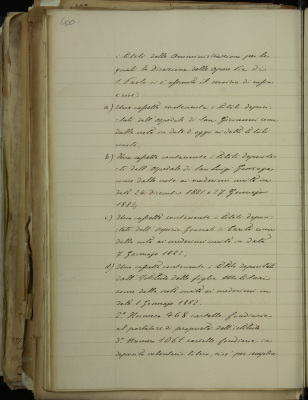 600
i titoli delle Amministrazioni per le
quali la direzione delle opere Pie di
S. Paolo si è assunto il servizio di cassa
e cioè:
a) Una cassetta contenente i titoli deposi-
tati dall'Ospedale di San Giovanni come
dalla nota in data d'oggi ai detti titoli
unita.
b) Una cassetta contenente i titoli deposita-
ti dall'Ospedale di San Luigi Gonzaga
come dalla nota ai medesimi unita in
data 24 dicembre 1881 e 27 Gennaio
1882;
c) Una cassetta contenente i titoli deposi-
tati dall'Asperia Generale di Carità come
dalla nota ai medesimi unita in data
7 Gennajo 1882;
d) Una cassetta contenente i titoli depositati
dall'Istituto delle figlie
come dalla nota unita ai medesimi in
data 1 Gennajo 1882.
2° Numero 468 cartelle fondiarie
al portatore di proprietà dell'istituto.
3° Numero 1065 cartelle fondiarie, in
deposito volontario libero, cioè per semplice